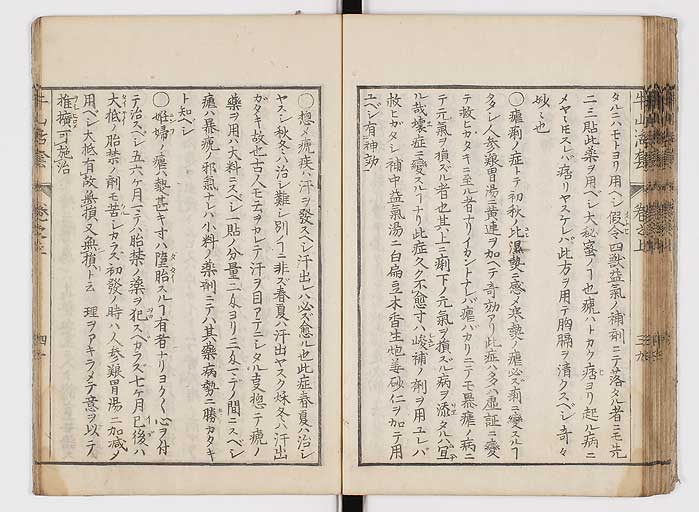 タルニハモトヨリ用ベシ假令四獸益氣ノ補剤ニテ落タル者ニモ先
二三貼此薬ヲ用ベシ大秘蜜ノヿ也瘧ハトカク痞ヨリ起ル病ニ
メヤヽモスレバ痞リヤスケレバ此方ヲ用テ胸膈ヲ清クスベシ奇々
妙々也
〇瘧痢ノ症トテ初秋ノ比濕熱ニ感メ寒熱ノ瘧必ズ痢ニ變スルヿ
タタシ人參養胃湯ニ黄連ヲ加ヘテ奇効アリ此症ハ多ハ虚証ニ變
テ救ヒカタキニ至ル者ナリイカントナレバ瘧バカリニテモ暴瘧ノ病ニ
テ元氣ヲ損ズル者也其上ニ痢下ノ元氣ヲ損ズル病ヲ添タルハ宜
ル哉壊症ニ變スルヿナリ此症久ク不愈寸ハ峻補ノ剤ヲ用ユレバ
救ヒガタシ補中益氣湯ニ白扁豆木香生姜砂仁ヲ加テ用
ユベシ有神効
〇惣メ瘧疾ハ汗ヲ發スベシ汗出レハ必ズ愈ル也此症春夏ハ治シ
ヤスシ秋冬ハ治シ難シ別ノヿニ非ズ春夏ハ汗出ヤスク秋冬ハ汗出
カタキ故也古人モ云ヲカレテ汗ヲ目アテニシタル支惣テ瘧ノ
薬ヲ用ハ大料ニスベシ一貼ノ分量二匁ヨリ三匁マデノ間ニスベシ
瘧ハ暴瘧ノ邪氣ナレハ小料ノ薬剤ニテハ其薬病勢ニ勝カタキ
ト知ベシ
〇妊婦ノ瘧ハ熱甚キ寸ハ墮胎スルヿ有者ナリヨクヽ心ヲ付
テ治スベシ五六ケ月マテハ胎禁ノ薬ヲ犯スベカラズ七ケ月已後ハ
大抵ノ胎禁ノ剤モ苦シカラズ初發ノ時ハ人参養胃湯ニ加減メ
用ベシ大抵有故無損又無損ト云 理ヲアキラメテ意ヲ以テノ
推擴可施治